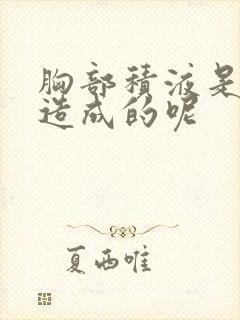 胸部積液是
造成的呢
夏西唯